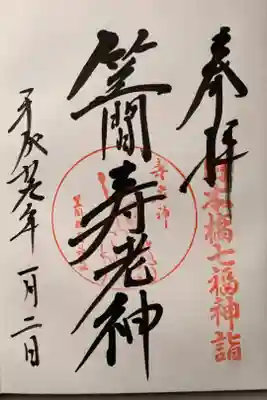 奉拝
日本橋七福神詣
笠間寿老神
寿老神
平成廿九年一月二日